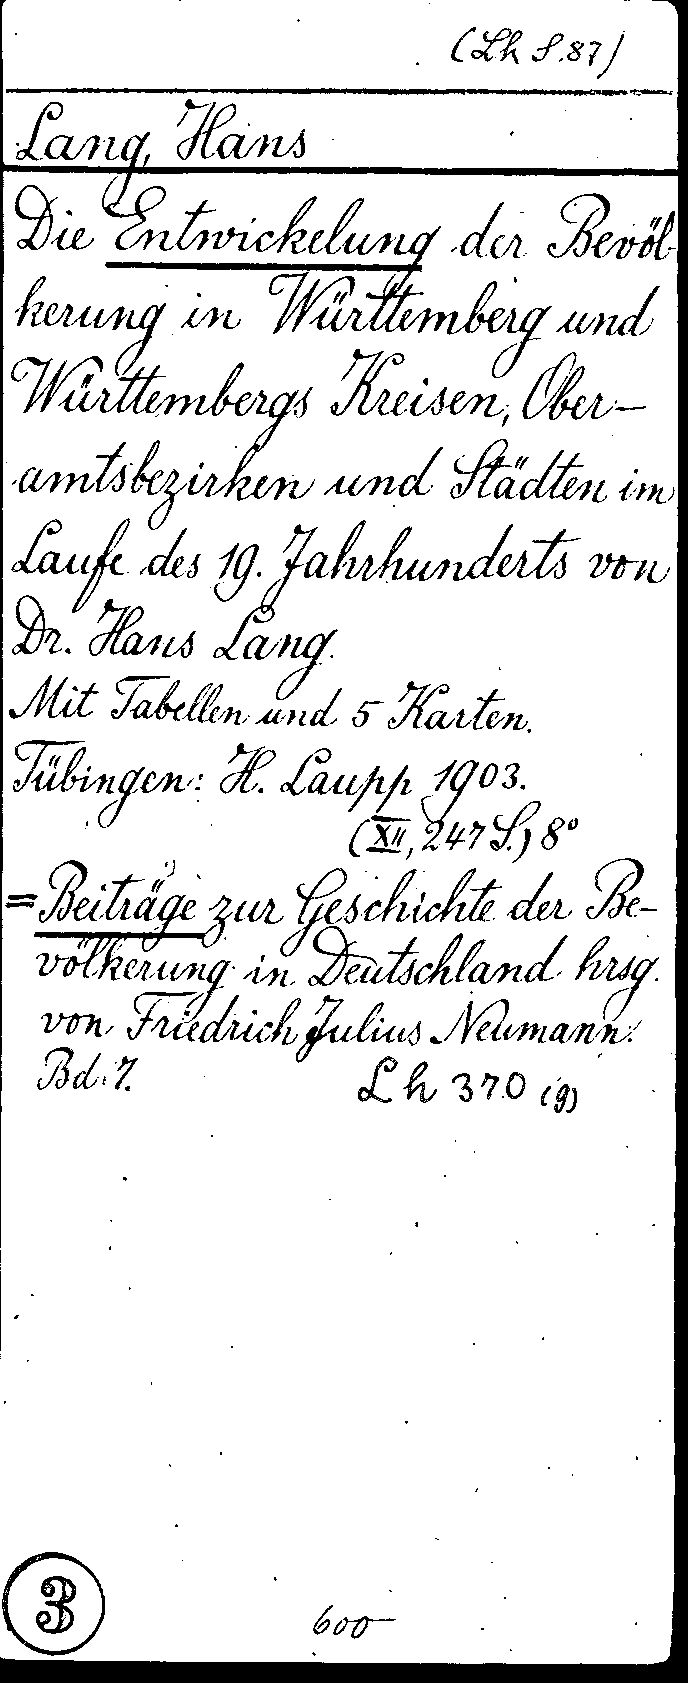 (Lh S. 87)
Lang, Hans
Die Entwickelung der Bevöl-
kerung in Württemberg und
Württembergs Kreisen, Ober-
amtsbezirken und Städten im
Laufe des 19. Jahrhunderts von
Dr. Hans Lang.
Mit Tabellen und 5 Karten.
Tübingen: H. Laupp 1903.
(XII, 247 S.) 8°
= Beiträge zur Geschichte der Be-
völkerung in Deutschland hrsg.
von Friedrich Julius Neumann.
Bd. 7. Lh 370 (g)
3
600